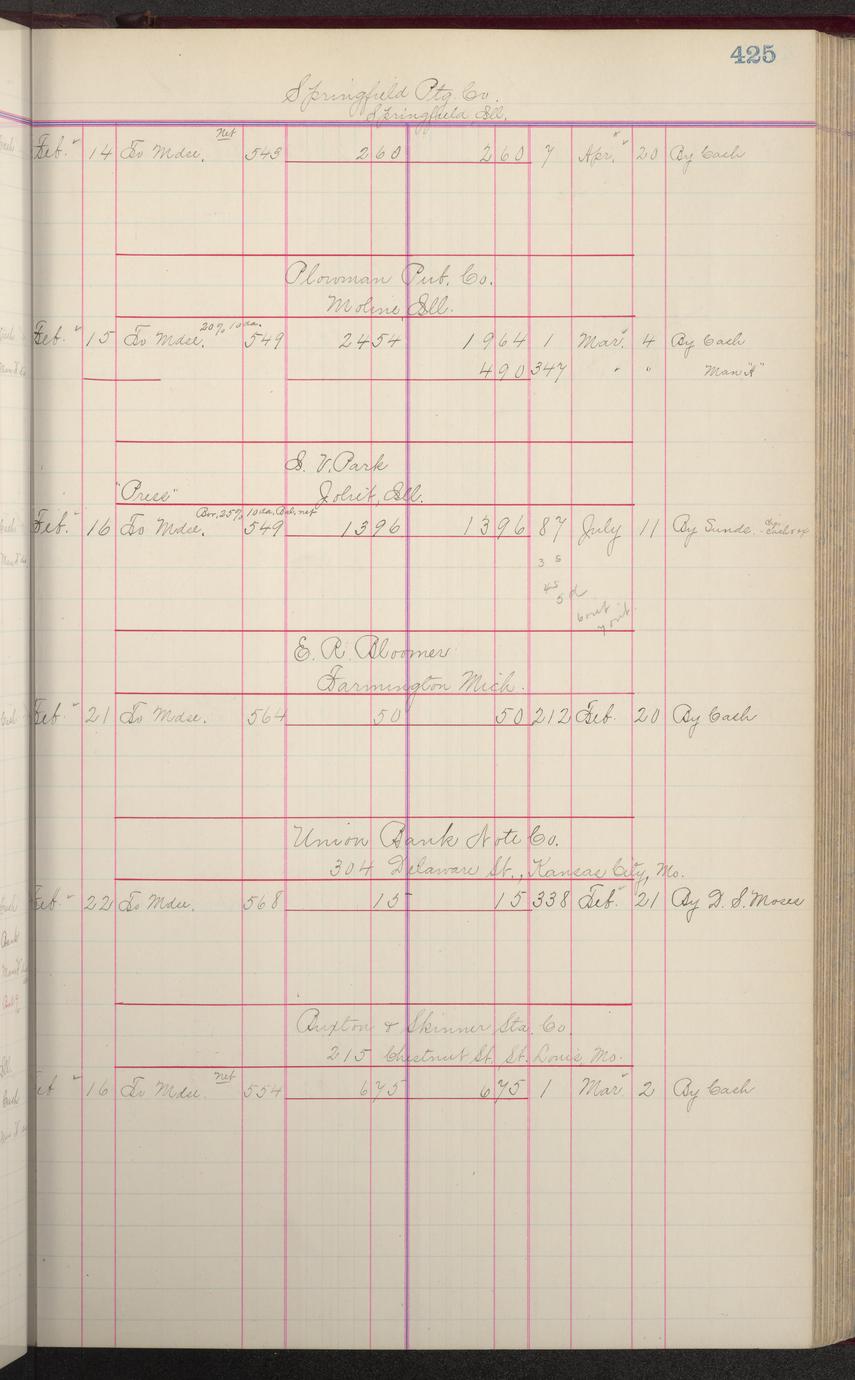 425
Springfield Ptg. Co.
Springfield, Ill.
Feb. " 14 To Mdse. net 543 260 260 7 Apr. " 20 By Cash
Plowman Pub. Co.
Moline, Ill.
Feb. " 15 To Mdse. 20% 10 da. 549 2454 1964 1 Mar. " 4 By Cash
490 347 " " Man'f'
S. V. Park
"Press" Joliet, Ill.
Feb. " 16 To Mdse. Bor. 25% 10 da. Bal. net 549 1396 1396 87 July 11 By Sunds.
3 5
45
5 d
6 out
7 out
E. R. Bloomer
Farmington Mich.
Feb. " 21 To Mdse. 564 50 50 212 Feb. 20 By Cash
Union Bank Note Co.
304 Delaware St., Kansas City, Mo.
Feb. " 22 To Mdse. 568 15 15 338 Feb. " 21 By D. S. Moses
Buxton & Skinner Sta. Co.
215 Chestnut St. St. Louis, Mo.
Feb " 16 To Mdse. net 554 675 675 1 Mar " 2 By Cash